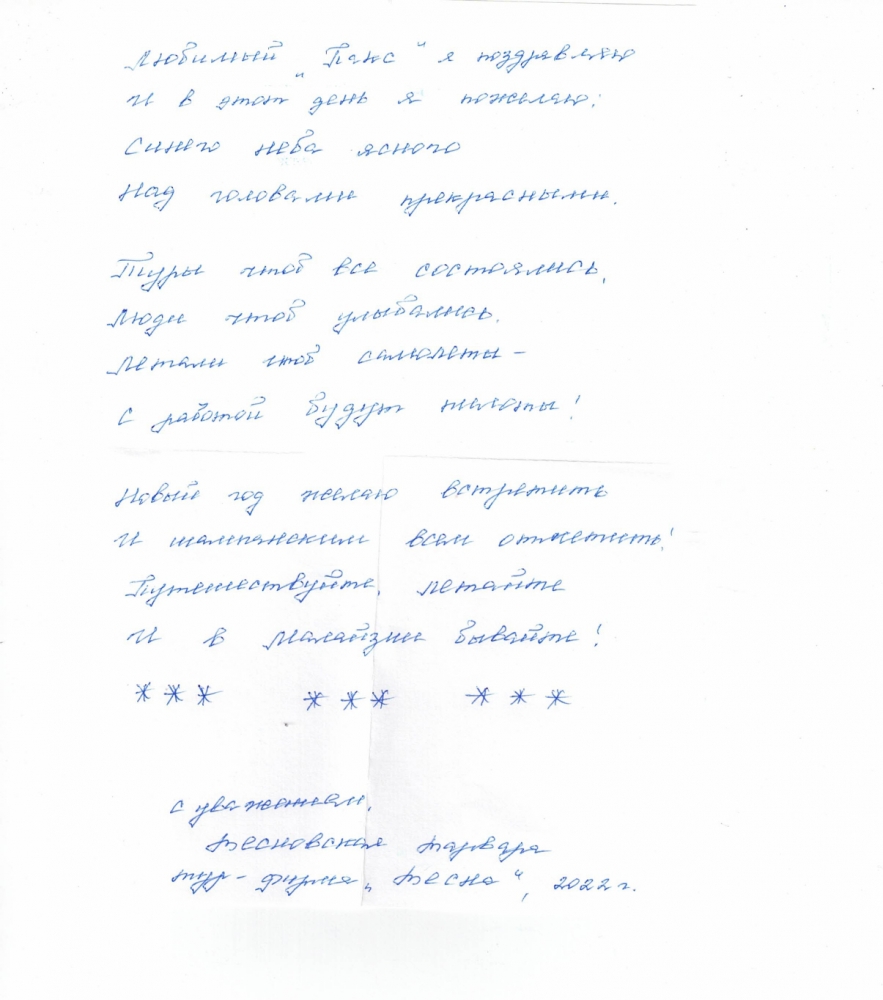 Любимый „Пакс“ я поздравляю
И в этот день я пожелаю:
Синего неба ясного
Над головами прекрасными.
Туры чтоб все состоялись,
Люди чтоб улыбались.
Летали чтоб самолеты –
С работой будут пилоты!
Новый год желаю встретить
И шампанским всем отметить!
Путешествуйте, летайте
И в Малайзии бывайте!
*** *** ***
С уважением,
Варвара
тур-фирма „ “, 2022 г.